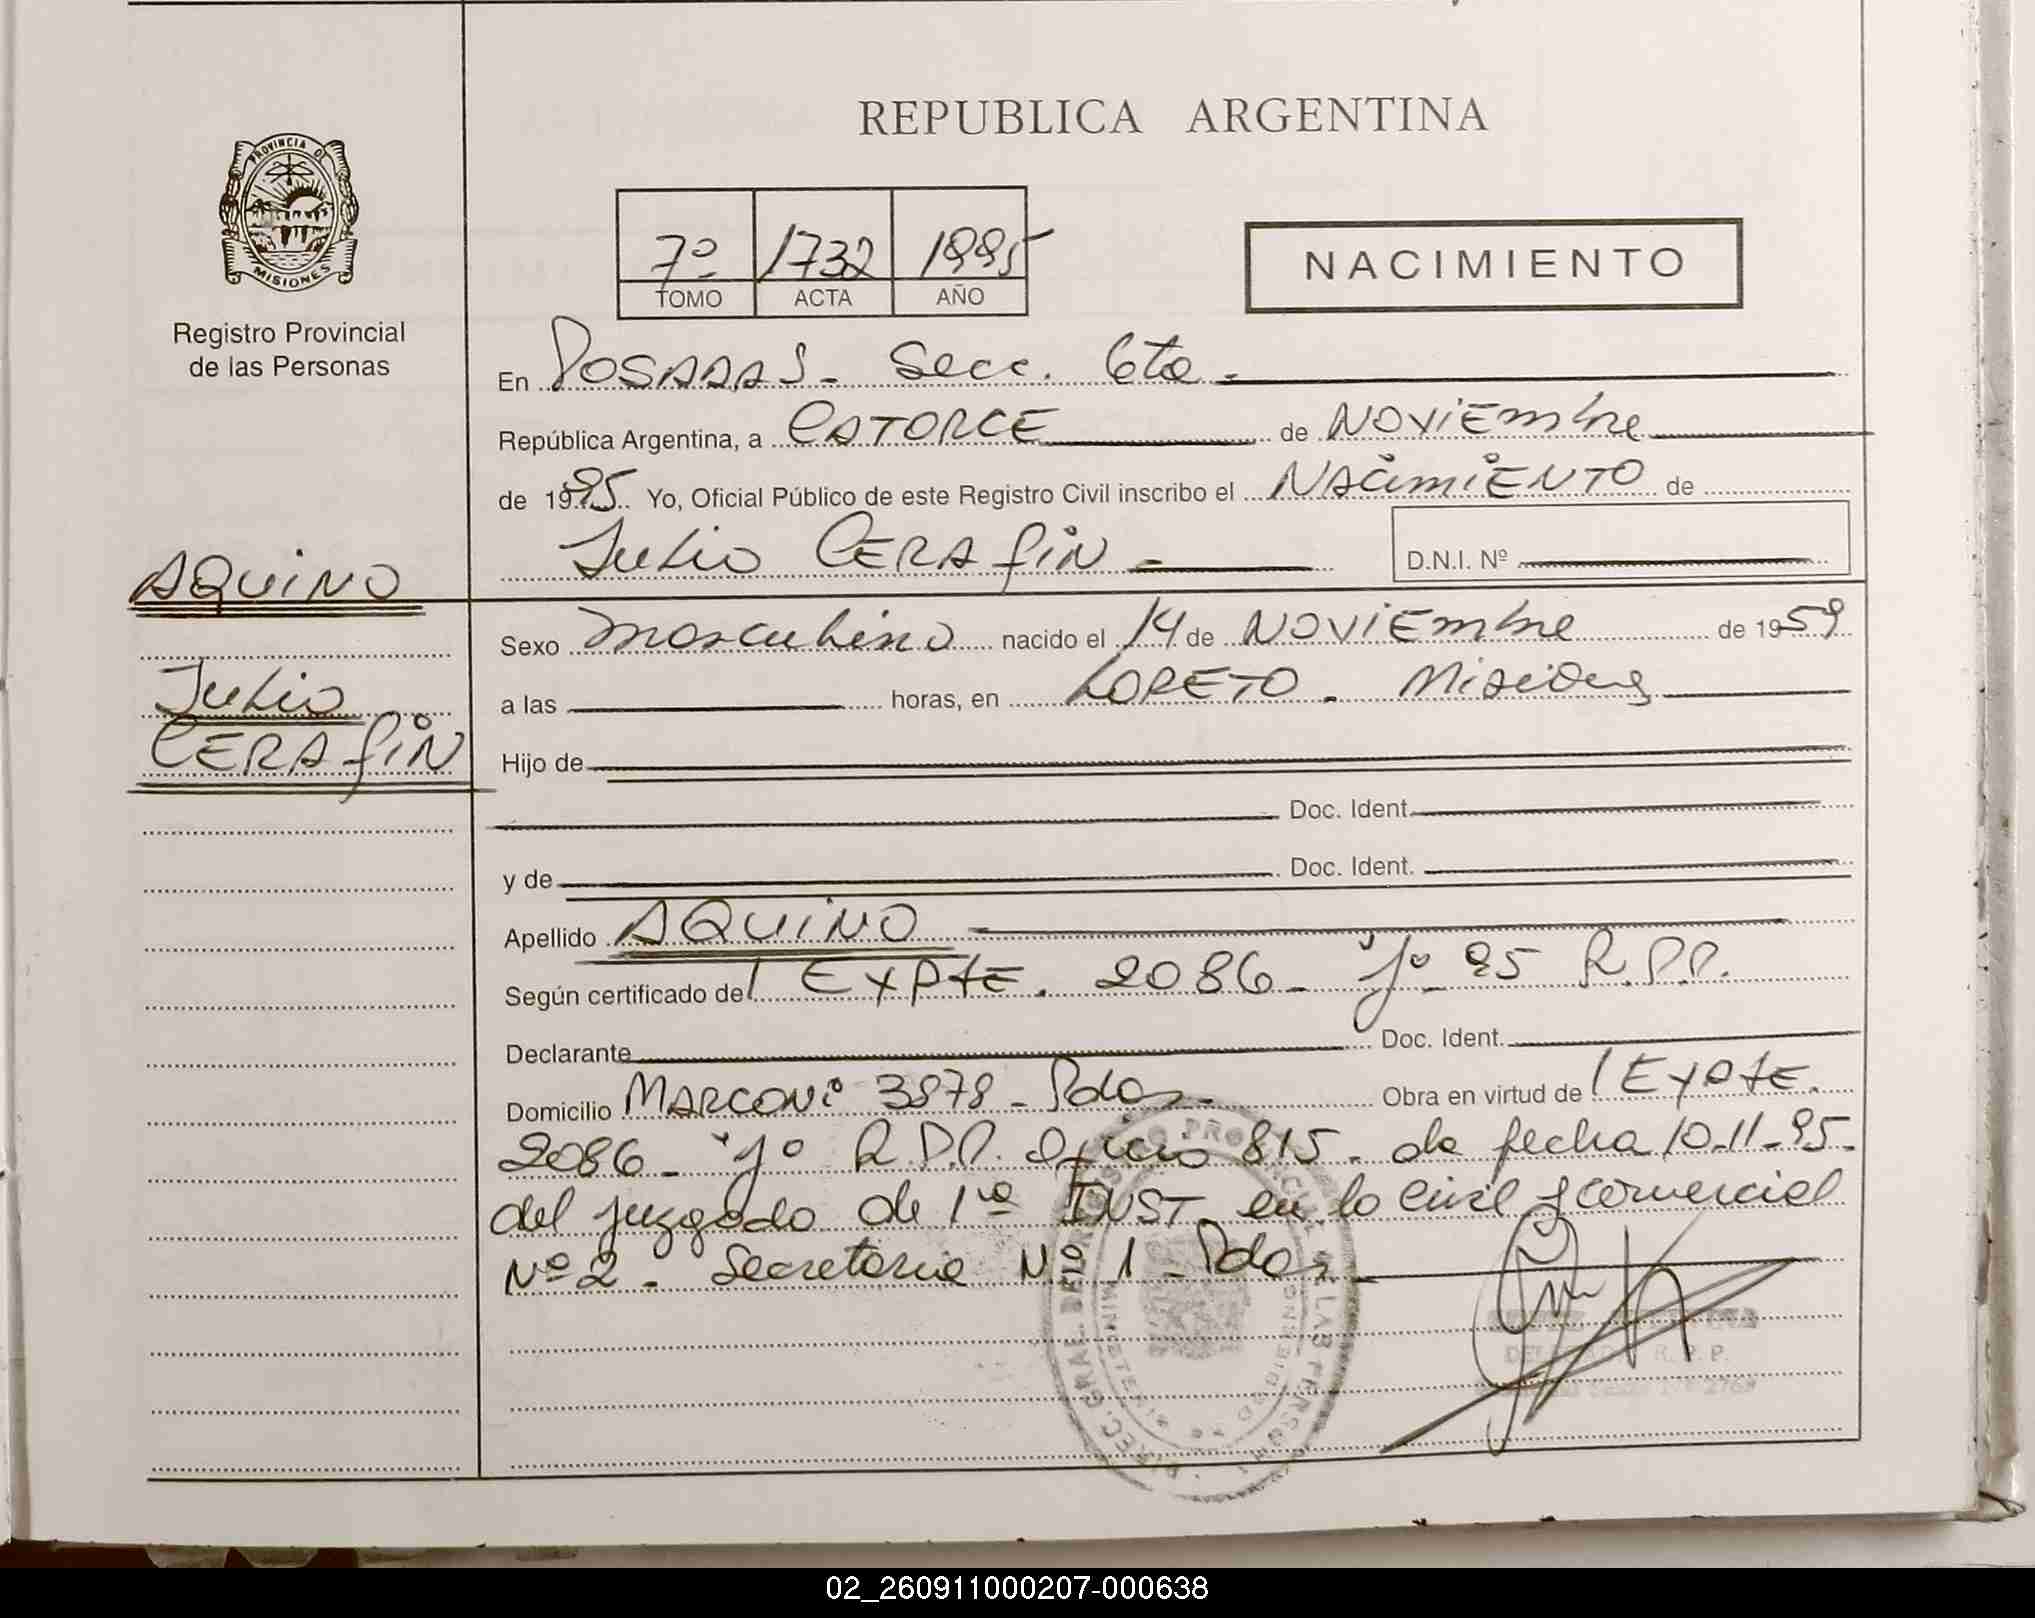 REPUBLICA ARGENTINA
PROVINCIA DE
MISIONES
Registro Provincial
de las Personas
7º 1732 1995
TOMO ACTA AÑO
NACIMIENTO
En POSADAS - Secc. 6ta -
República Argentina, a CATORCE de NOVIEmbre
de 1995 Yo, Oficial Público de este Registro Civil inscribo el NACimiENTO de
Julio CERAfiN - D.N.I. Nº
AQUiNO
Julio
CERAfiN
Sexo masculino nacido el 14 de NOVIEmbre de 1959
a las horas, en LORETO - Misiones
Hijo de
Doc. Ident.
y de Doc. Ident.
Apellido AQUiNO
Según certificado del Expte. 2086 - "y" 95 R.P.P.
Declarante Doc. Ident.
Domicilio MARCONi 3878 - Pdas - Obra en virtud de l Expte.
2086 - "y" R.P.P. Oficio 815 - de fecha 10-11-95 -
del juzgado de 1ra INST en lo Civil y Comercial
Nº 2 - Secretaria Nº 1 - Pdas -
R. P. P.
02_260911000207-000638